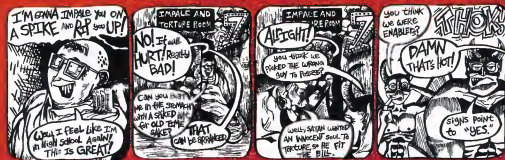 I'M GONNA IMPALE YOU ON
A SPIKE AND RIP YOU UP!
Wow, I feel like I'm
in High School Again!
This is GREAT!
IMPALE AND
TORTURE ROOM
7
NO! It will
HURT! Really
BAD!
Can you hurt
me in the stomach
with a spiked
for old time
sake?
THAT
can be arranged.
IMPALE AND
ROOM
7
ALRIGHT!
you think we
picked the wrong
guy to possess?
well, Satan wanted
an innocent soul to
torture, so he fit
the bill.
you think
we were
enabled?
THOK
DAMN
THAT'S HOT!
signs point
to "YES."